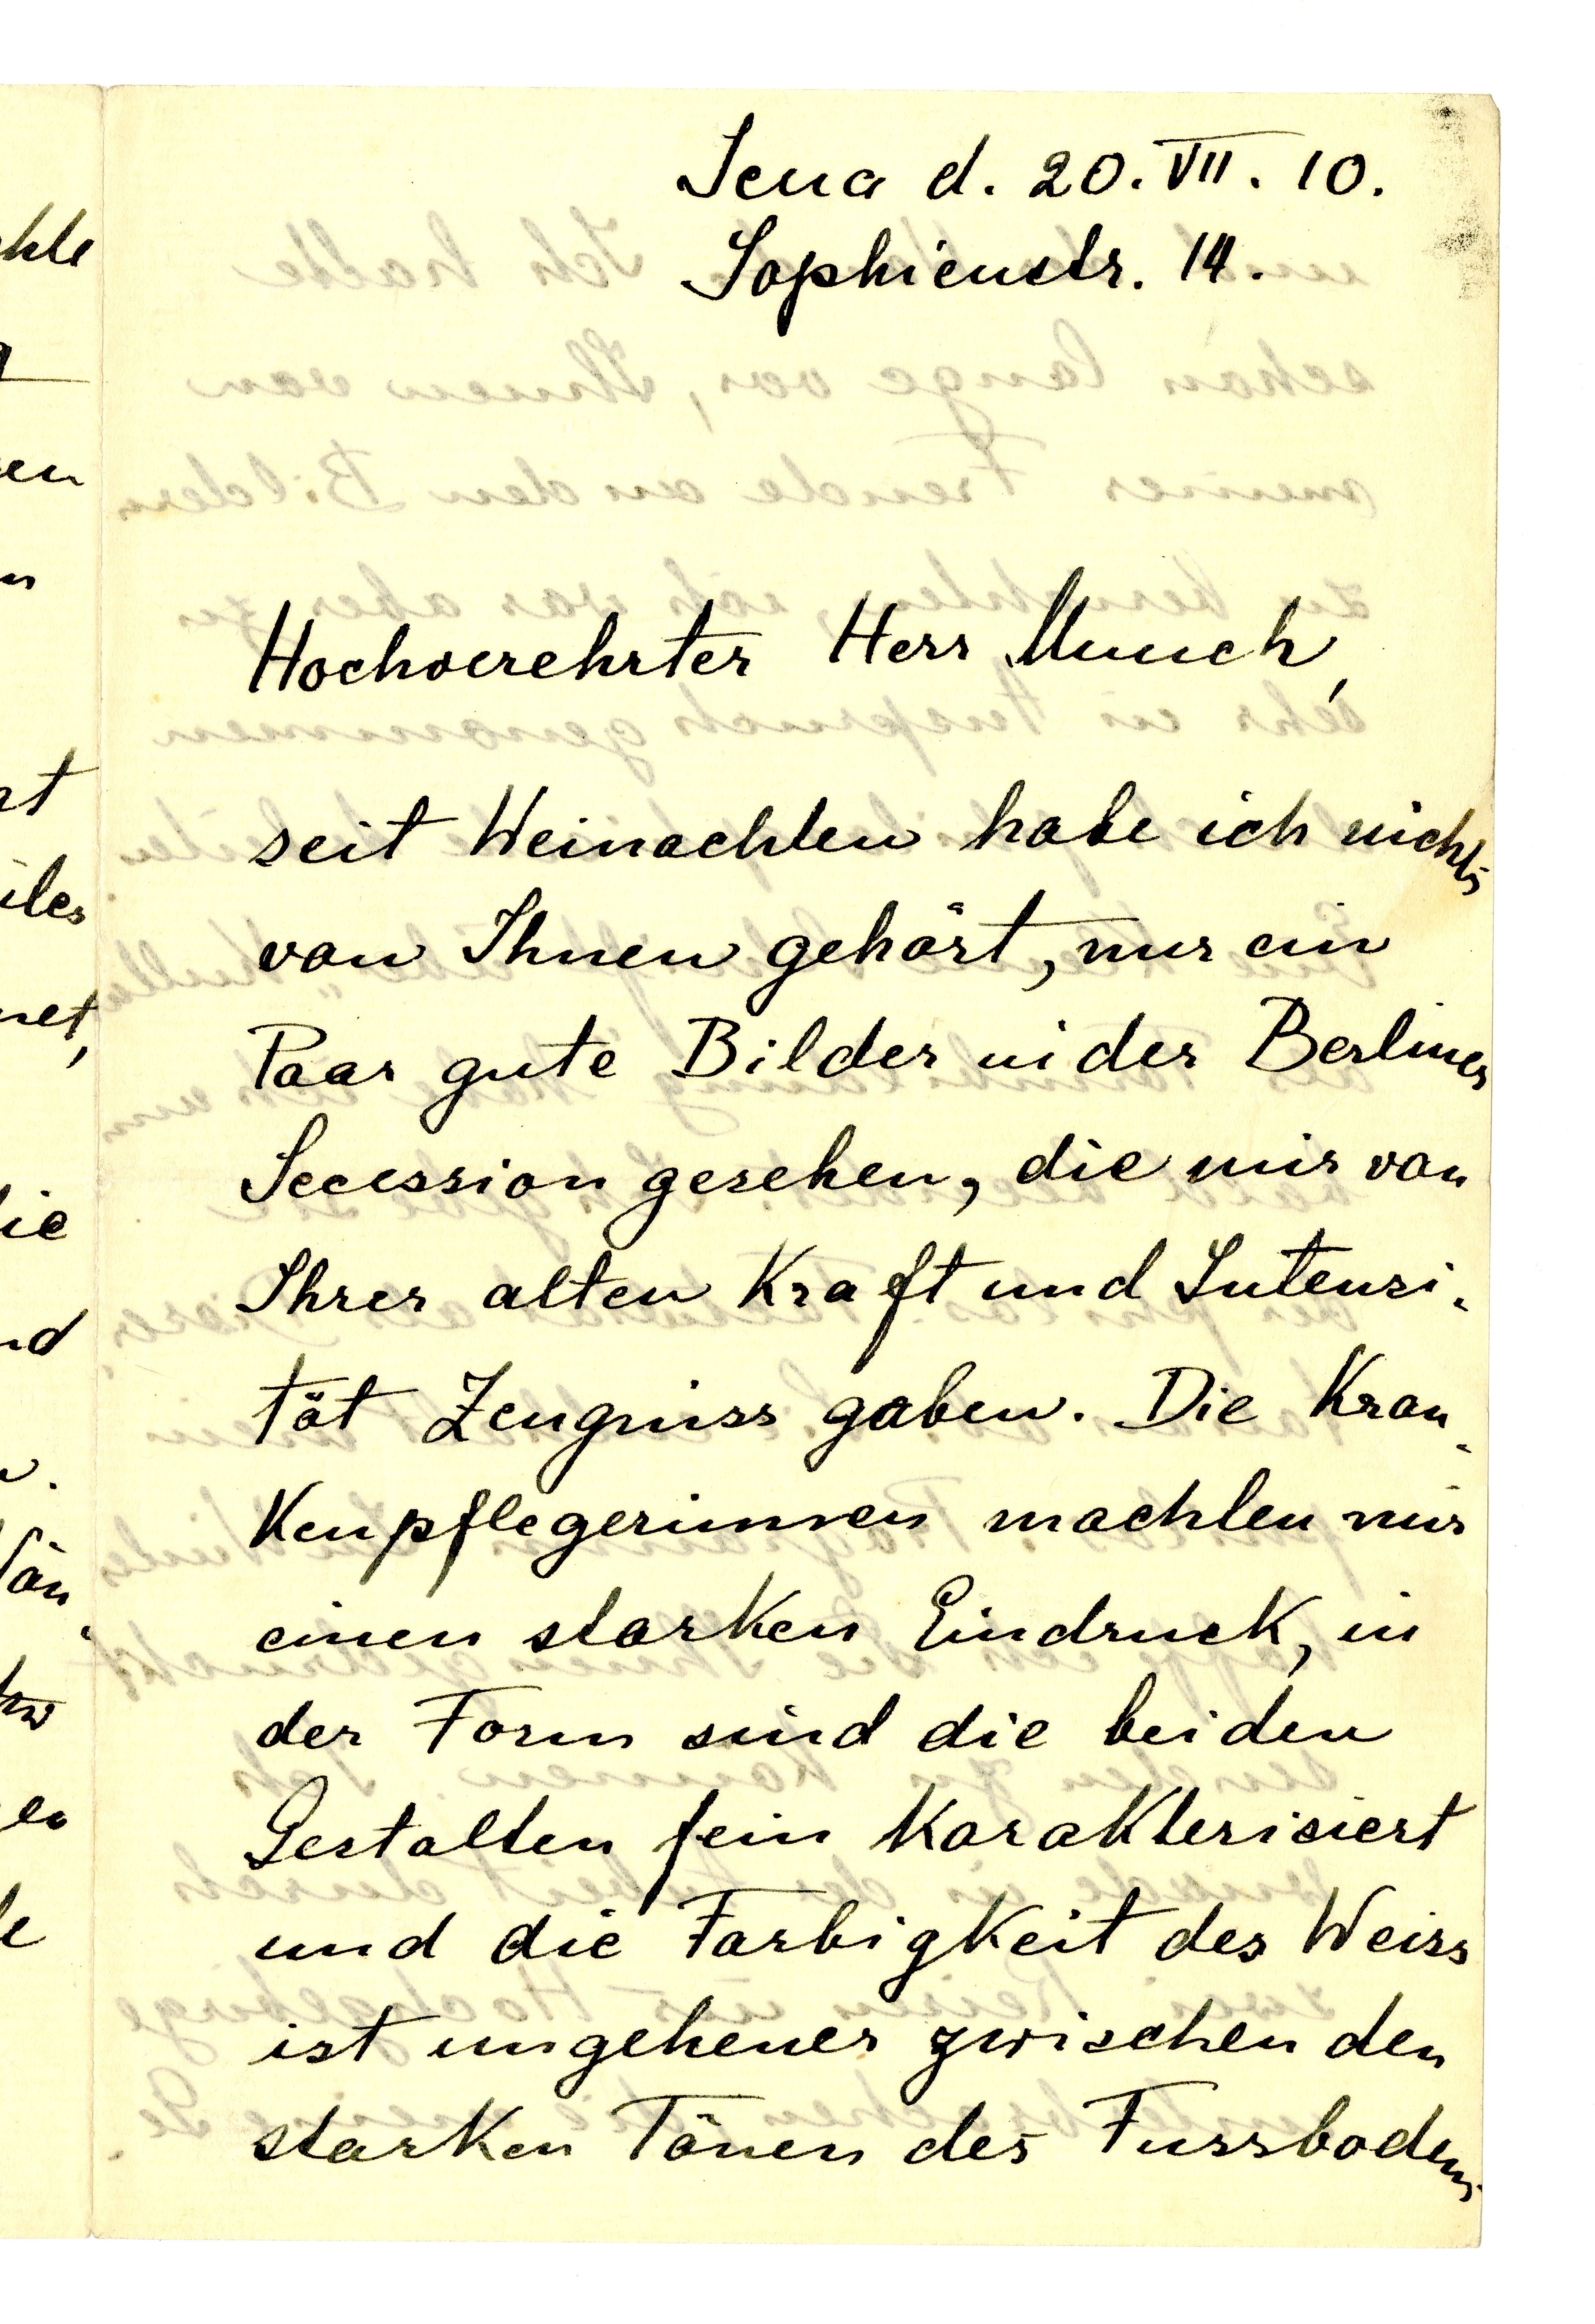 Jena d. 20. VII. 10.
Sophienstr. 14.
Hochverehrter Herr Munch,
seit Weinachten habe ich nichts
von Ihnen gehört, nur ein
Paar gute Bilder in der Berliner
Secession gesehen, die mir von
Ihrer alten Kraft und Intensi-
tät Zeugniss gaben. Die Kran-
kenpflegerinnen machten mir
einen starken Eindruck, in
der Form sind die beiden
Gestalten fein karakterisiert
und die Farbigkeit des Weiss
ist ungeheuer zwischen den
starken Tönen des Fussbodens